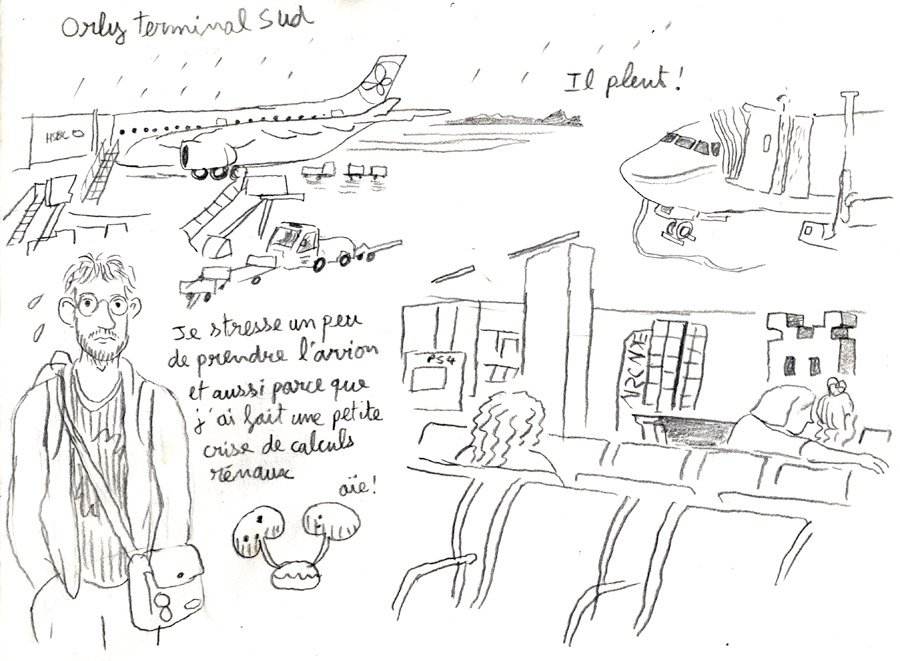 Orly terminal Sud
Il pleut !
HSBC
Je stresse un peu
de prendre l'avion
et aussi parce que
j'ai fait une petite
crise de calculs
rénaux
aïe!
PS4
ARCADE